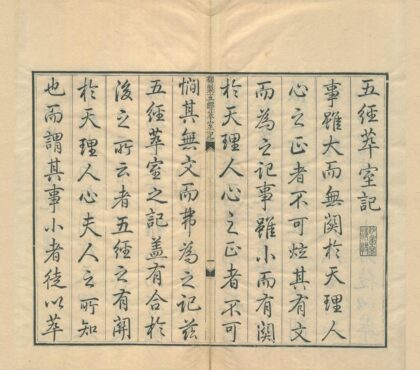 五經萃室記
事雖大而無関於天理人
心之正者不可炫其有文
而為之記事雖小而有関
於天理人心之正者不可
御製五經萃室記
一
憫其無文而弗為之記茲
五經萃室之記蓋有合於
後之所云者五經之有関
於天理人心夫人之所知
也而謂其事小者徒以萃